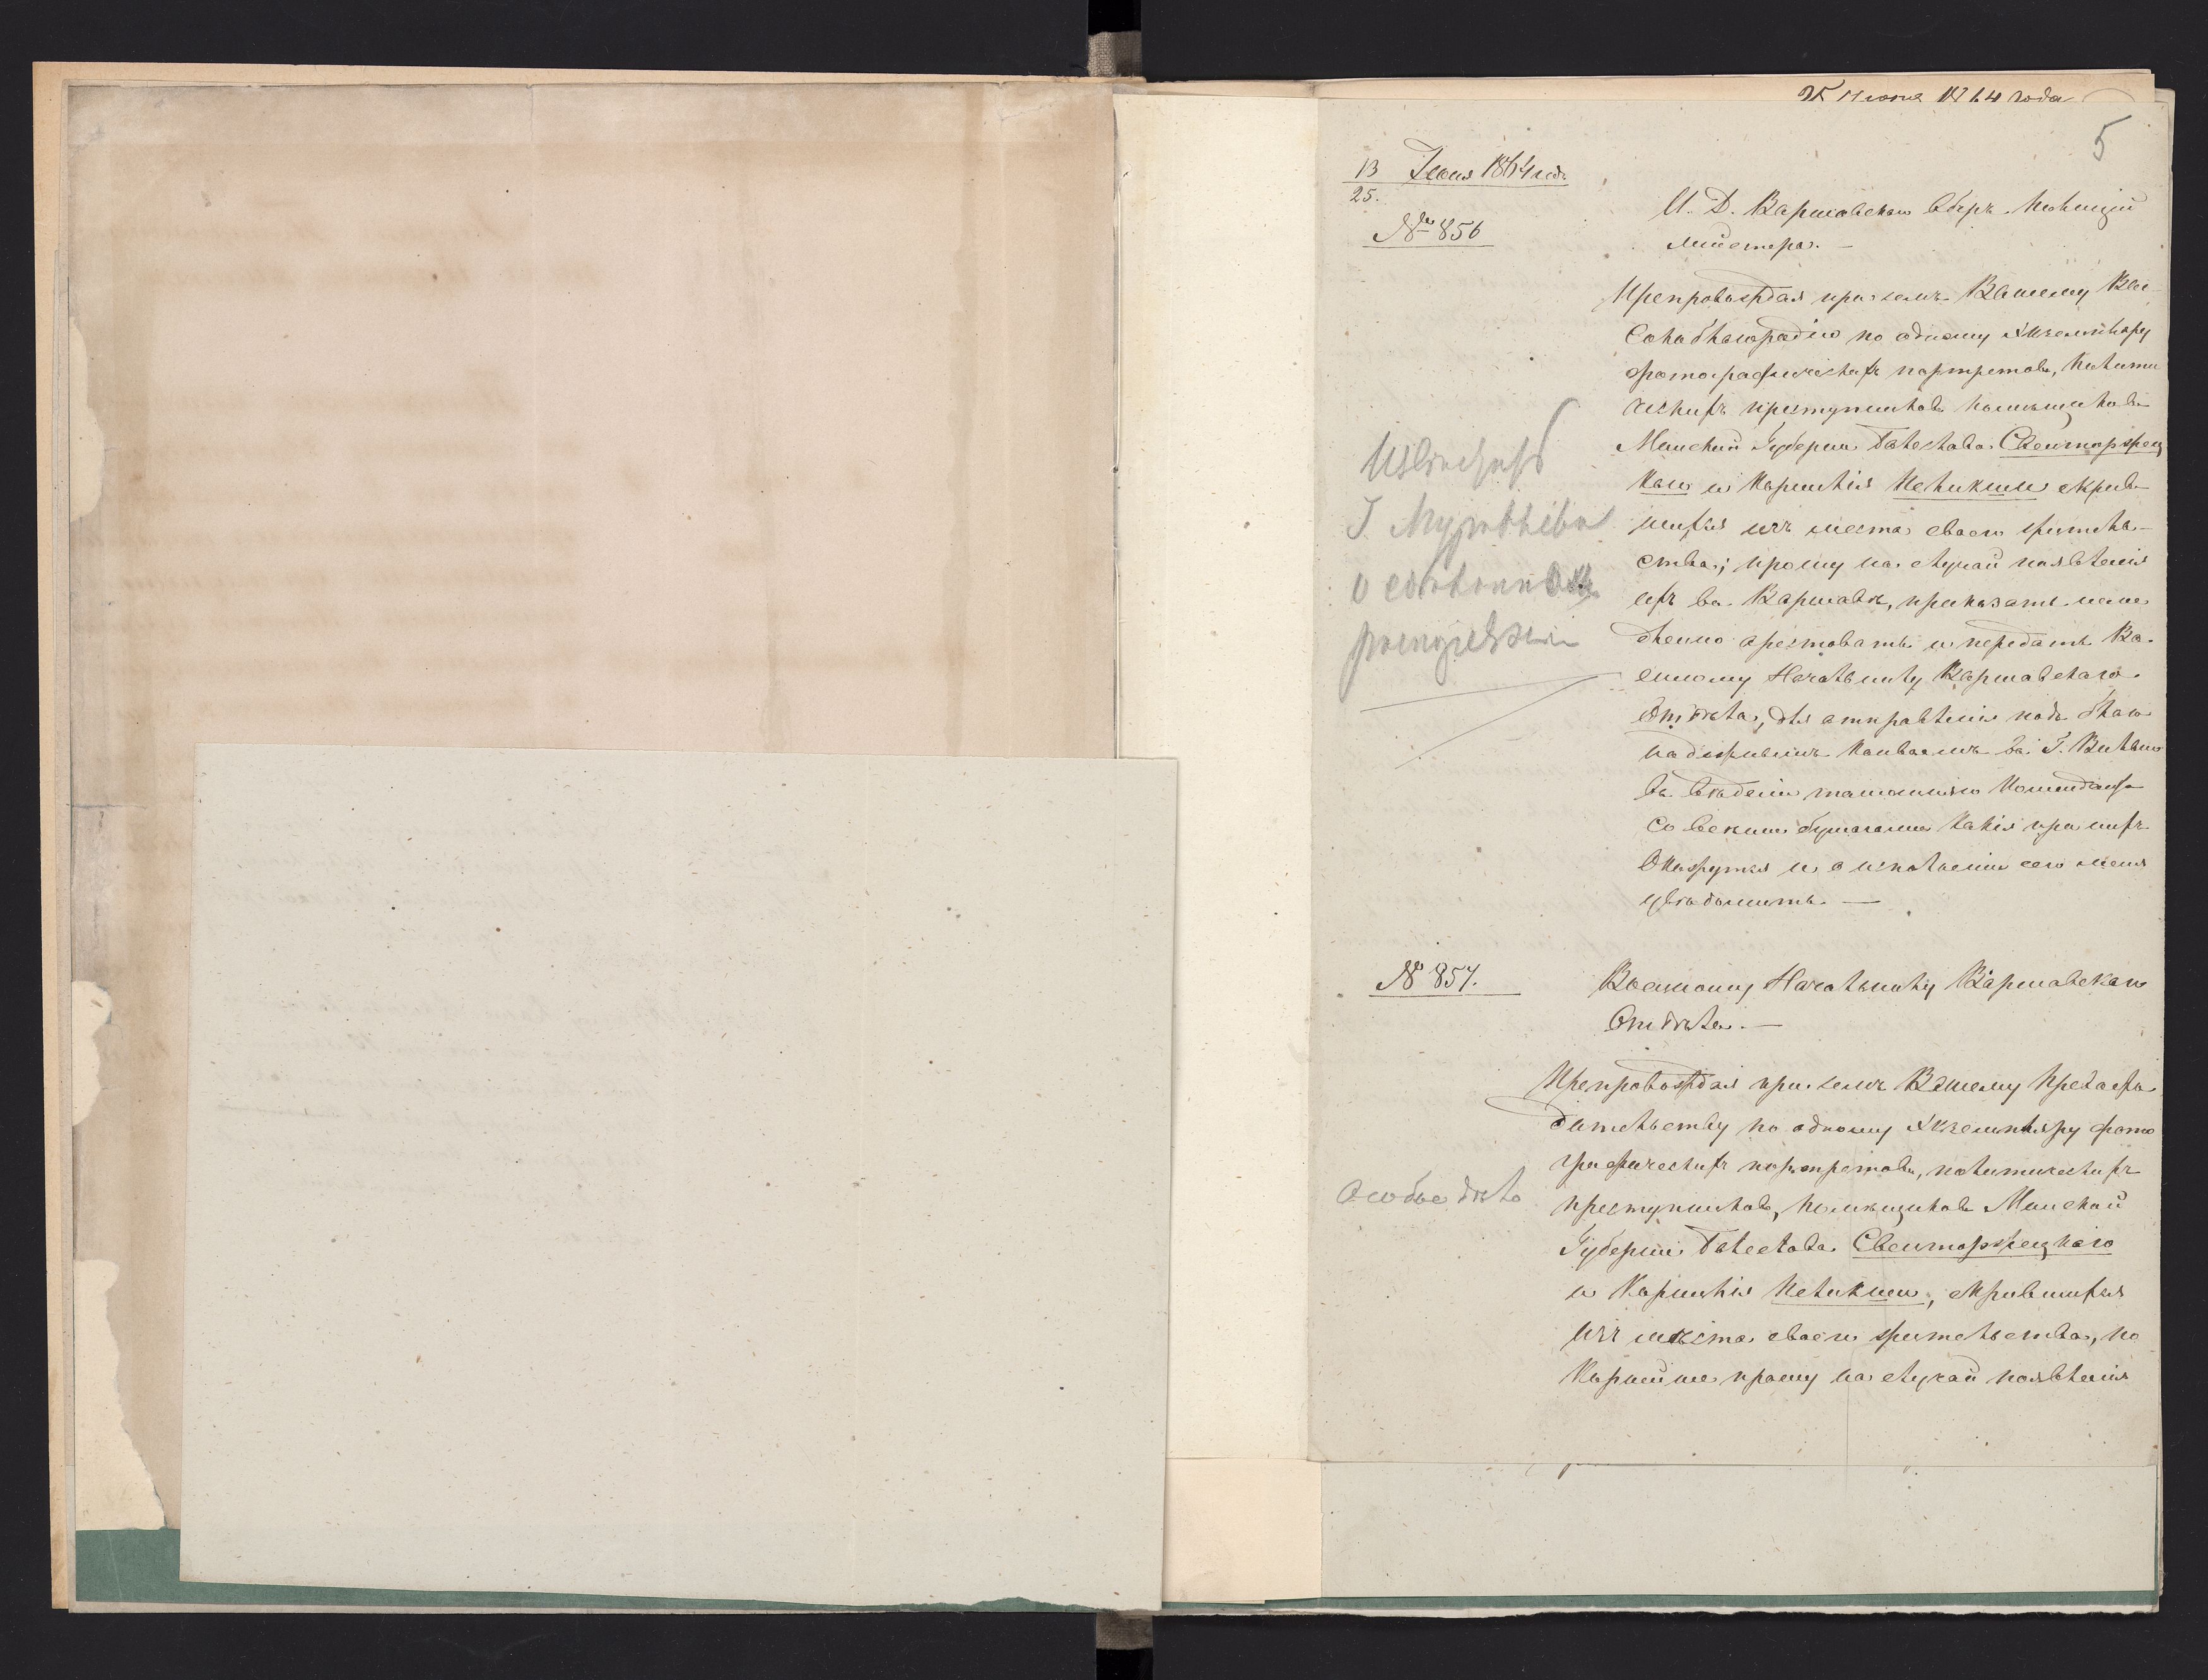 25 Июня 1864 года
5
13 Іюня 1864 года
25.
№ 856
И. Д. Варшавскаго Оберъ-Полиций
мейстера. —
Препровождая при семъ Вашему Вы
сокоблагородію по одному экземпляру
фотографическихъ портретовъ, полити
ческихъ преступниковъ помѣщиковъ
Минской Губерніи Болеслава Свенторжец
каго и Корнилія Пеликши скрыв
шихся изъ места своего житель
ства; прошу на случай появленія
ихъ въ Варшавѣ, приказать неме
дленно арестовать и передать Во
енному Начальнику Варшавскаго
Отдѣла, для отправленія подъ благо
надежнымъ конвоемъ въ Г. Вильно
въ вѣденіе тамошняго Коменданта
со всеми бумагами какія при нихъ
окажутся и о исполненіи сего меня
увѣдомить. —
Г. Муравьева
о
№ 857.
Военному Начальнику Варшавскаго
Отдѣла. —
Препровождая при семъ Вашему Превосхо
дительству по одному экземпляру фото
графическихъ портретовъ, политическихъ
Особое дѣло
преступниковъ, помѣщиковъ Минской
Губерніи Болеслава Свенторжецкаго
и Корнилія Пеликши, скрывшихся
изъ мѣста своего жительства, по
корнѣйше прошу на случай появленія